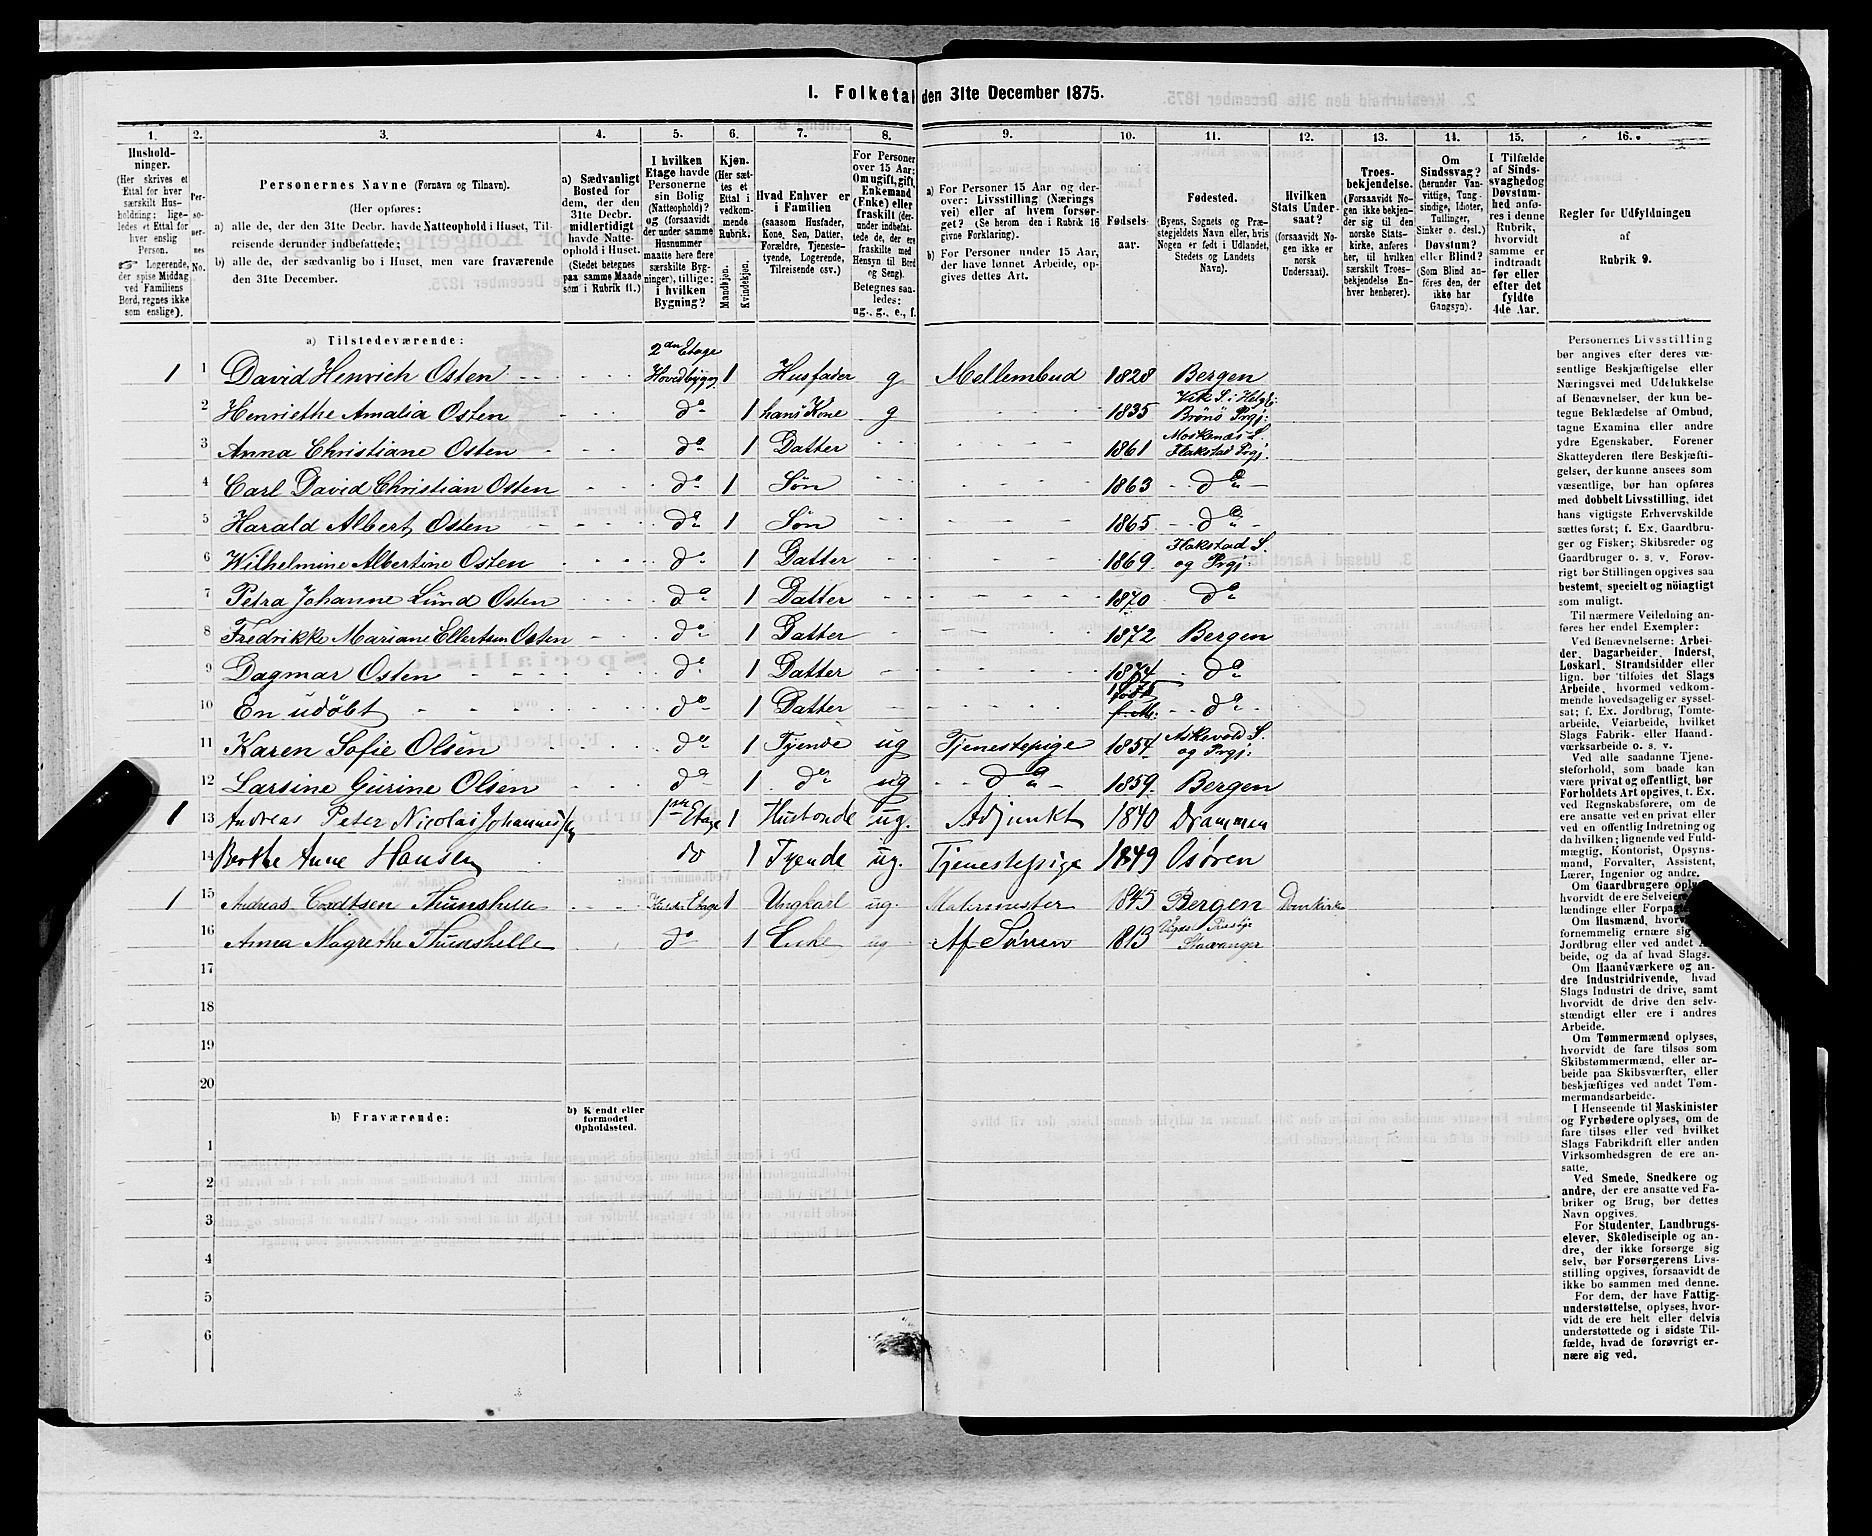 1. Folketal den 31te December 1875.
1. 2. 3. 4. 5. 6. 7. 8. 9. 10. 11. 12. 13. 14. 15. 16.
Hushold-
ninger.
(Her skrives et
Ettal for hver
særskilt Hus-
holdning; lige-
ledes et Ettal for
hver enslig
Person.
☞ Logerende,
der spise Middag
ved Familiens
Bord, regnes ikke
som enslige).
Per-
so-
ner-
nes
No.
Personernes Navne (Fornavn og Tilnavn).
(Her opføres:
a) alle de, der den 31te Decbr. havde Natteophold i Huset, Til-
reisende derunder indbefattede;
b) alle de, der sædvanlig bo i Huset, men vare fraværende
den 31te December.
a) Sædvanligt
Bosted for
dem, der den
31te Decbr.
midlertidigt
havde Natte-
ophold i Huset.
(Stedet betegnes
paa samme Maade
som i Rubrik 11.)
I hvilken
Etage havde
Personerne
sin Bolig
(Natteophold)?
og (forsaavidt
der under samme
Husnummer
maatte høre flere
særskilte Byg-
ninger), tillige:
i hvilken
Bygning?
Kjøn.
(Her sæt-
tes et Ettal
i vedkom-
mende
Rubrik.
Mandkjøn.
Kvindekjøn.
Hvad Enhver er
i Familien
(saasom Husfader,
Kone, Søn, Datter,
Forældre, Tjeneste-
tyende, Logerende,
Tilreisende osv.)
For Personer
over 15 Aar:
Om ugift, gift,
Enkemand
(Enke) eller
fraskilt (der-
under indbefat-
tede de, der ere
fraskilte med
Hensyn til Bord
og Seng).
Betegnes saa-
ledes:
ug., g., e., f.
a) For Personer 15 Aar og der-
over: Livsstilling (Nærings
vei) eller af hvem forsør-
get? (Se herom den i Rubrik 16
givne Forklaring).
b) For Personer under 15 Aar,
der have lønnet Arbeide, op-
gives dettes Art.
Fødsels-
aar.
Fødested.
(Byens, Sognets og Præ-
stegjeldets Navn eller, hvis
Nogen er født i Udlandet,
Stedets og Landets
Navn).
Hvilken
Stats Under-
saat?
(forsaavidt No-
gen ikke er
norsk
Undersaat).
Troes-
bekjendelse.
(Forsaavidt No-
gen ikke bekjen-
der sig til den
norske Stats-
kirke, anføres
her, til hvilken
særskilt Troes-
bekjendelse En-
hver henhører).
Om
Sindssvag?
(herunder Van-
vittige, Tung-
sindige, Idioter,
Tullinger,
Sinker o. desl.)
Døvstum?
eller Blind?
(Som Blind an-
føres den, der
ikke har
Gangsyn).
I Tilfælde
af Sinds-
svaghed og
Døvstum-
hed anfø-
res i denne
Rubrik,
hvorvidt
samme er
indtraadt
før eller
efter det
fyldte
4de Aar.
Regler for Udfyldningen
af
Rubrik 9.
a) Tilstedeværende:
1 1 David Henrich Osten 2den Etage Hovedbygn 1 Husfader g Mellembud 1828 Bergen
2 Henriethe Amalia Osten do 1 hans Kone g 1835 Vik S: Helgl: Brönö Prgj:
3 Anna Christiane Osten do 1 Datter 1861 Moskenæs S. Flakstad Prgj.
4 Carl David Christian Osten do 1 Søn 1863 do
5 Harald Albert Osten do 1 Søn 1865 do
6 Wilhelmine Albertine Osten do 1 Datter 1869 Flakstad S. og Prgj.
7 Petra Johanne Lund Osten do 1 Datter 1870 do
8 Fredrikke Mariane Ellertsen Osten do 1 Datter 1872 Bergen
9 Dagmar Osten do 1 Datter 1874 do
10 En udöbt do 1 Datter 1875 do
11 Karen Sofie Olsen do 1 Tyende ug Tjenestepige 1854 Askevold S. og Prgj:
12 Larsine Gurine Olsen do 1 do ug do 1859 Bergen
1 13 Andreas Peter Nicolai 1ste Etage 1 Husbonde ug. Adjunkt 1840 Drammen
14 Berthe Anne Hansen do 1 Tyende ug. Tjenestepige 1849 Osøren
1 15 Andreas Cordtsen Thunshelle Kjelder Etage 1 Ungkarl ug. Malermester 1845 Bergen Domkirke
16 Anna Magrethe Thunshelle do 1 Enke ug Af Sönen 1813 Stavanger
17
18
19
20
b) Fraværende:
b) Kjendt eller
formodet
Opholdssted.
1
2
3
4
5
6
Personernes Livsstilling
bør angives efter deres væ-
sentlige Beskjæftigelse eller
Næringsvei med Udelukkelse
af Benævnelser, der kun be-
tegne Beklædelse af Ombud,
tagne Examina eller andre
ydre Egenskaber. Forener
Skatteyderen flere Beskjæfti-
gelser, der kunne ansees som
væsentlige, bør han opføres
med dobbelt Livsstilling, idet
hans vigtigste Erhvervskilde
sættes først; f. Ex. Gaardbru-
ger og Fisker; Skibsreder og
Gaardbruger o. s. v. Forøv-
rigt bør Stillingen opgives saa
bestemt, specielt og nöiagtigt
som muligt.
Til nærmere Veiledning an-
føres her endel Exempler:
Ved Benævnelserne: Arbei-
der, Dagarbeider, Inderst,
Løskarl, Strandsidder eller
lign. bør tilføies det Slags
Arbeide, hvormed vedkom-
mende hovedsagelig er syssel-
sat; f. Ex. Jordbrug, Tomte-
arbeide, Veiarbeide, hvilket
Slags Fabrik- eller Haand-
værksarbeide o. s. v.
Ved alle saadanne Tjene-
steforhold, som baade kan
være privat og offentligt, bør
Forholdets Art opgives, f. Ex.
ved Regnskabsførere, om de
ere ansatte ved en privat eller
ved en offentlig Indretning og
da hvilken; lignende ved Fuld-
mægtig, Kontorist, Opsyns-
mand, Forvalter, Assistent,
Lærer, Ingeniør og andre.
Om Gaardbrugere oplyses,
hvorvidt de ere Selveiere,
lændinge eller Forpagtere.
Om Husmænd, hvorvidt
fornemmelig ernære sig
Jordbrug eller ved andet Ar-
beide, og da af hvad Slags.
Om Haandværkere og an-
dre Industridrivende, hvad
Slags Industri de drive, samt
hvorvidt de drive den selv-
stændigt eller ere i andres
Arbeide.
Om Tømmermænd oplyses,
hvorvidt de fare tilsøs som
Skibstømmermænd, eller ar-
beide paa Skibsværfter, eller
beskjæftiges ved andet Tøm-
mermandsarbeide.
I Henseende til Maskinister
og Fyrbødere oplyses, om de
fare tilsøs eller ved hvilket
Slags Fabrikdrift eller anden
Virksomhedsgren de ere an-
satte.
Ved Smede, Snedkere og
andre, der ere ansatte ved Fa-
briker og Brug, bør dettes
Navn opgives.
For Studenter, Landbrugs-
elever, Skoledisciple og an-
dre, der ikke forsørge sig
selv, bør Forsørgerens Livs-
stilling opgives, forsaavidt de
ikke bo sammen med denne.
For dem, der have Fattig-
understøttelse, oplyses, hvor-
vidt de ere helt eller delvis
understøttede og i sidste Til-
fælde, hvad de forøvrigt er-
nære sig ved.